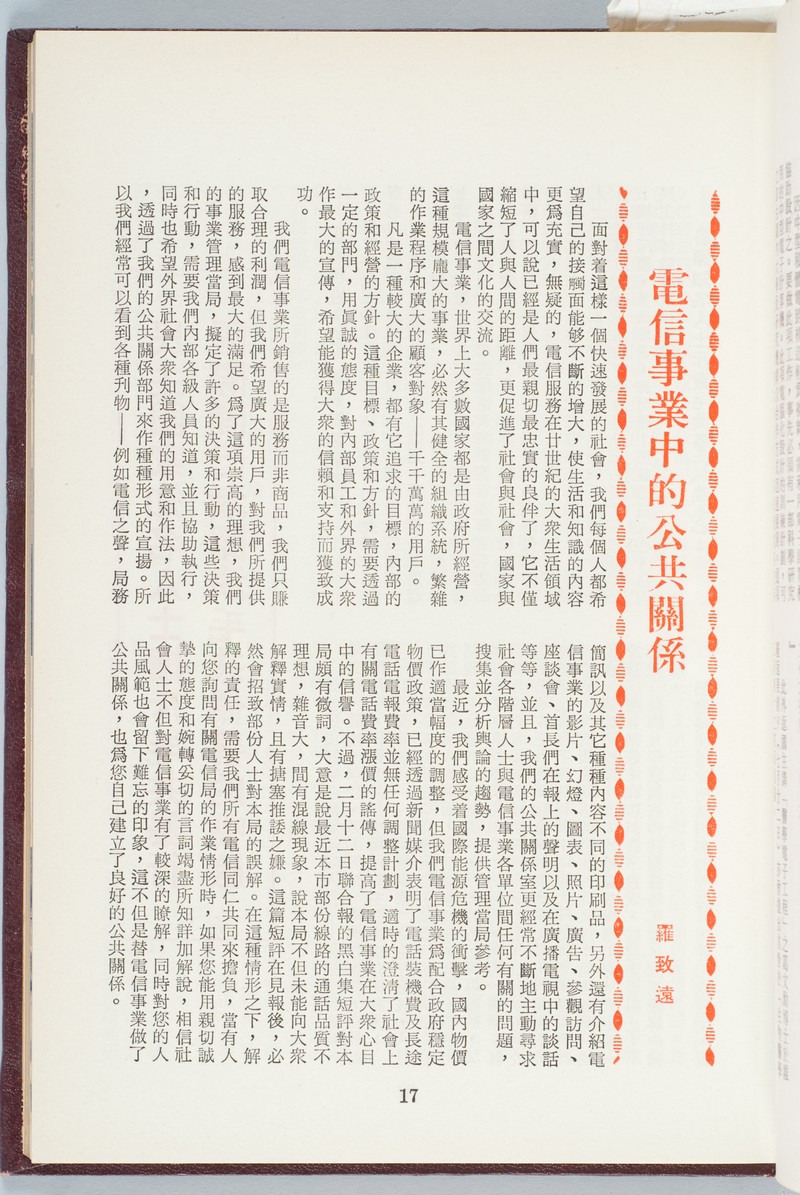 電信事業中的公共關係
羅致遠
面對着這樣一個快速發展的社會，我們每個人都希
望自己的接觸面能够不斷的增大，使生活和知識的內容
更爲充實，無疑的，電信服務在廿世紀的大衆生活領域
中，可以說已經是人們最親切最忠實的良伴了，它不僅
縮短了人與人間的距離，更促進了社會與社會，國家與
國家之間文化的交流。
電信事業，世界上大多數國家都是由政府所經營，
這種規模龐大的事業，必然有其健全的組織系統，繁雜
的作業程序和廣大的顧客對象——千千萬萬的用戶。
凡是一種較大的企業，都有它追求的目標，內部的
政策和經營的方針。這種目標、政策和方針，需要透過
一定的部門，用眞誠的態度，對內部員工和外界的大衆
作最大的宣傳，希望能獲得大衆的信賴和支持而獲致成
功。
我們電信事業所銷售的是服務而非商品，我們只賺
取合理的利潤，但我們希望廣大的用戶，對我們所提供
的服務，感到最大的滿足。爲了這項崇高的理想，我們
的事業管理當局，擬定了許多的決策和行動，這些決策
和行動，需要我們內部各級人員知道，並且協助執行，
同時也希望外界社會大衆知道我們的用意和作法，因此
，透過了我們的公共關係部門來作種種形式的宣揚。所
以我們經常可以看到各種刊物——例如電信之聲，局務
簡訊以及其它種種內容不同的印刷品，另外還有介紹電
信事業的影片、幻燈、圖表、照片、廣告、參觀訪問、
座談會、首長們在報上的聲明以及在廣播電視中的談話
等等，並且，我們的公共關係室更經常不斷地主動尋求
社會各階層人士與電信事業各單位間任何有關的問題，
搜集並分析輿論的趨勢，提供管理當局參考。
最近，我們感受着國際能源危機的衝擊，國內物價
已作適當幅度的調整，但我們電信事業爲配合政府穩定
物價政策，已經透過新聞媒介表明了電話裝機費及長途
電話電報費率並無任何調整計劃，適時的澄清了社會上
有關電話費率漲價的謠傳，提高了電信事業在大衆心目
中的信譽。不過，二月十二日聯合報的黑白集短評對本
局頗有微詞，大意是說最近本市部份線路的通話品質不
理想，雜音大，間有混線現象，說本局不但未能向大衆
解釋實情，且有搪塞推諉之嫌。這篇短評在見報後，必
然會招致部份人士對本局的誤解。在這種情形之下，解
釋的責任，需要我們所有電信同仁共同來擔負，當有人
向您詢問有關電信局的作業情形時，如果您能用親切誠
摯的態度和婉轉妥切的言詞竭盡所知詳加解說，相信社
會人士不但對電信事業有了較深的瞭解，同時對您的人
品風範也會留下難忘的印象，這不但是替電信事業做了
公共關係，也爲您自己建立了良好的公共關係。
17